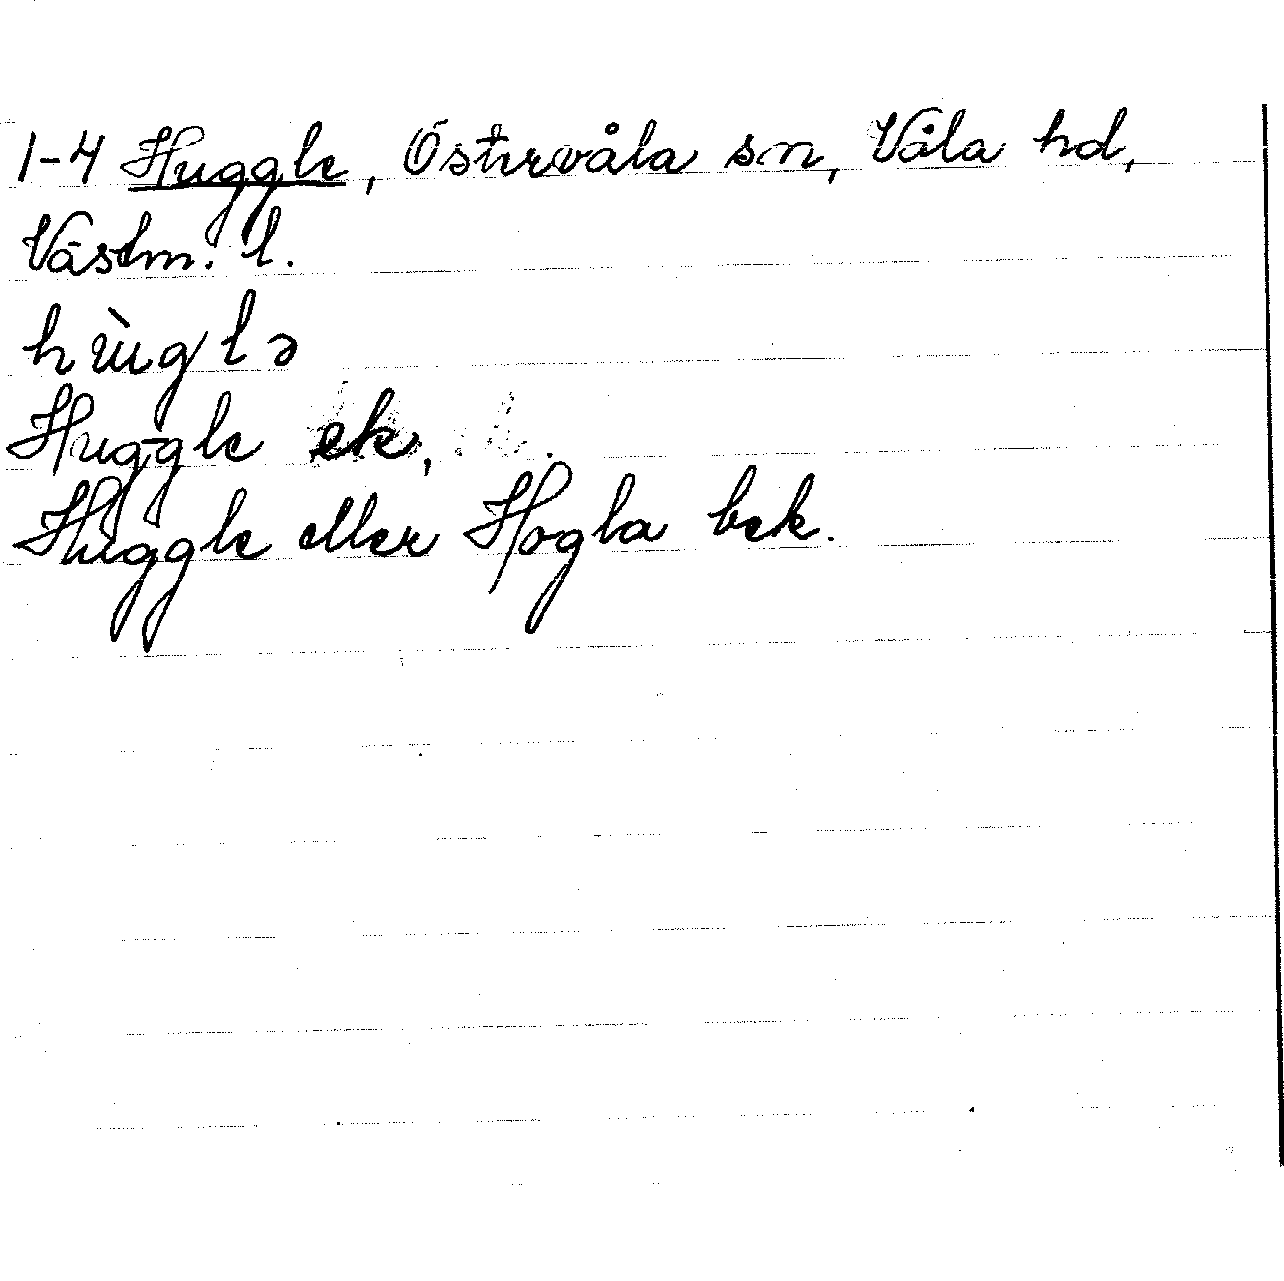 1-4 Huggle, Östervåla sn, Våla hd,
Västm. l.
hùglə
Huggle ek,
Huggle eller Hogla bek.